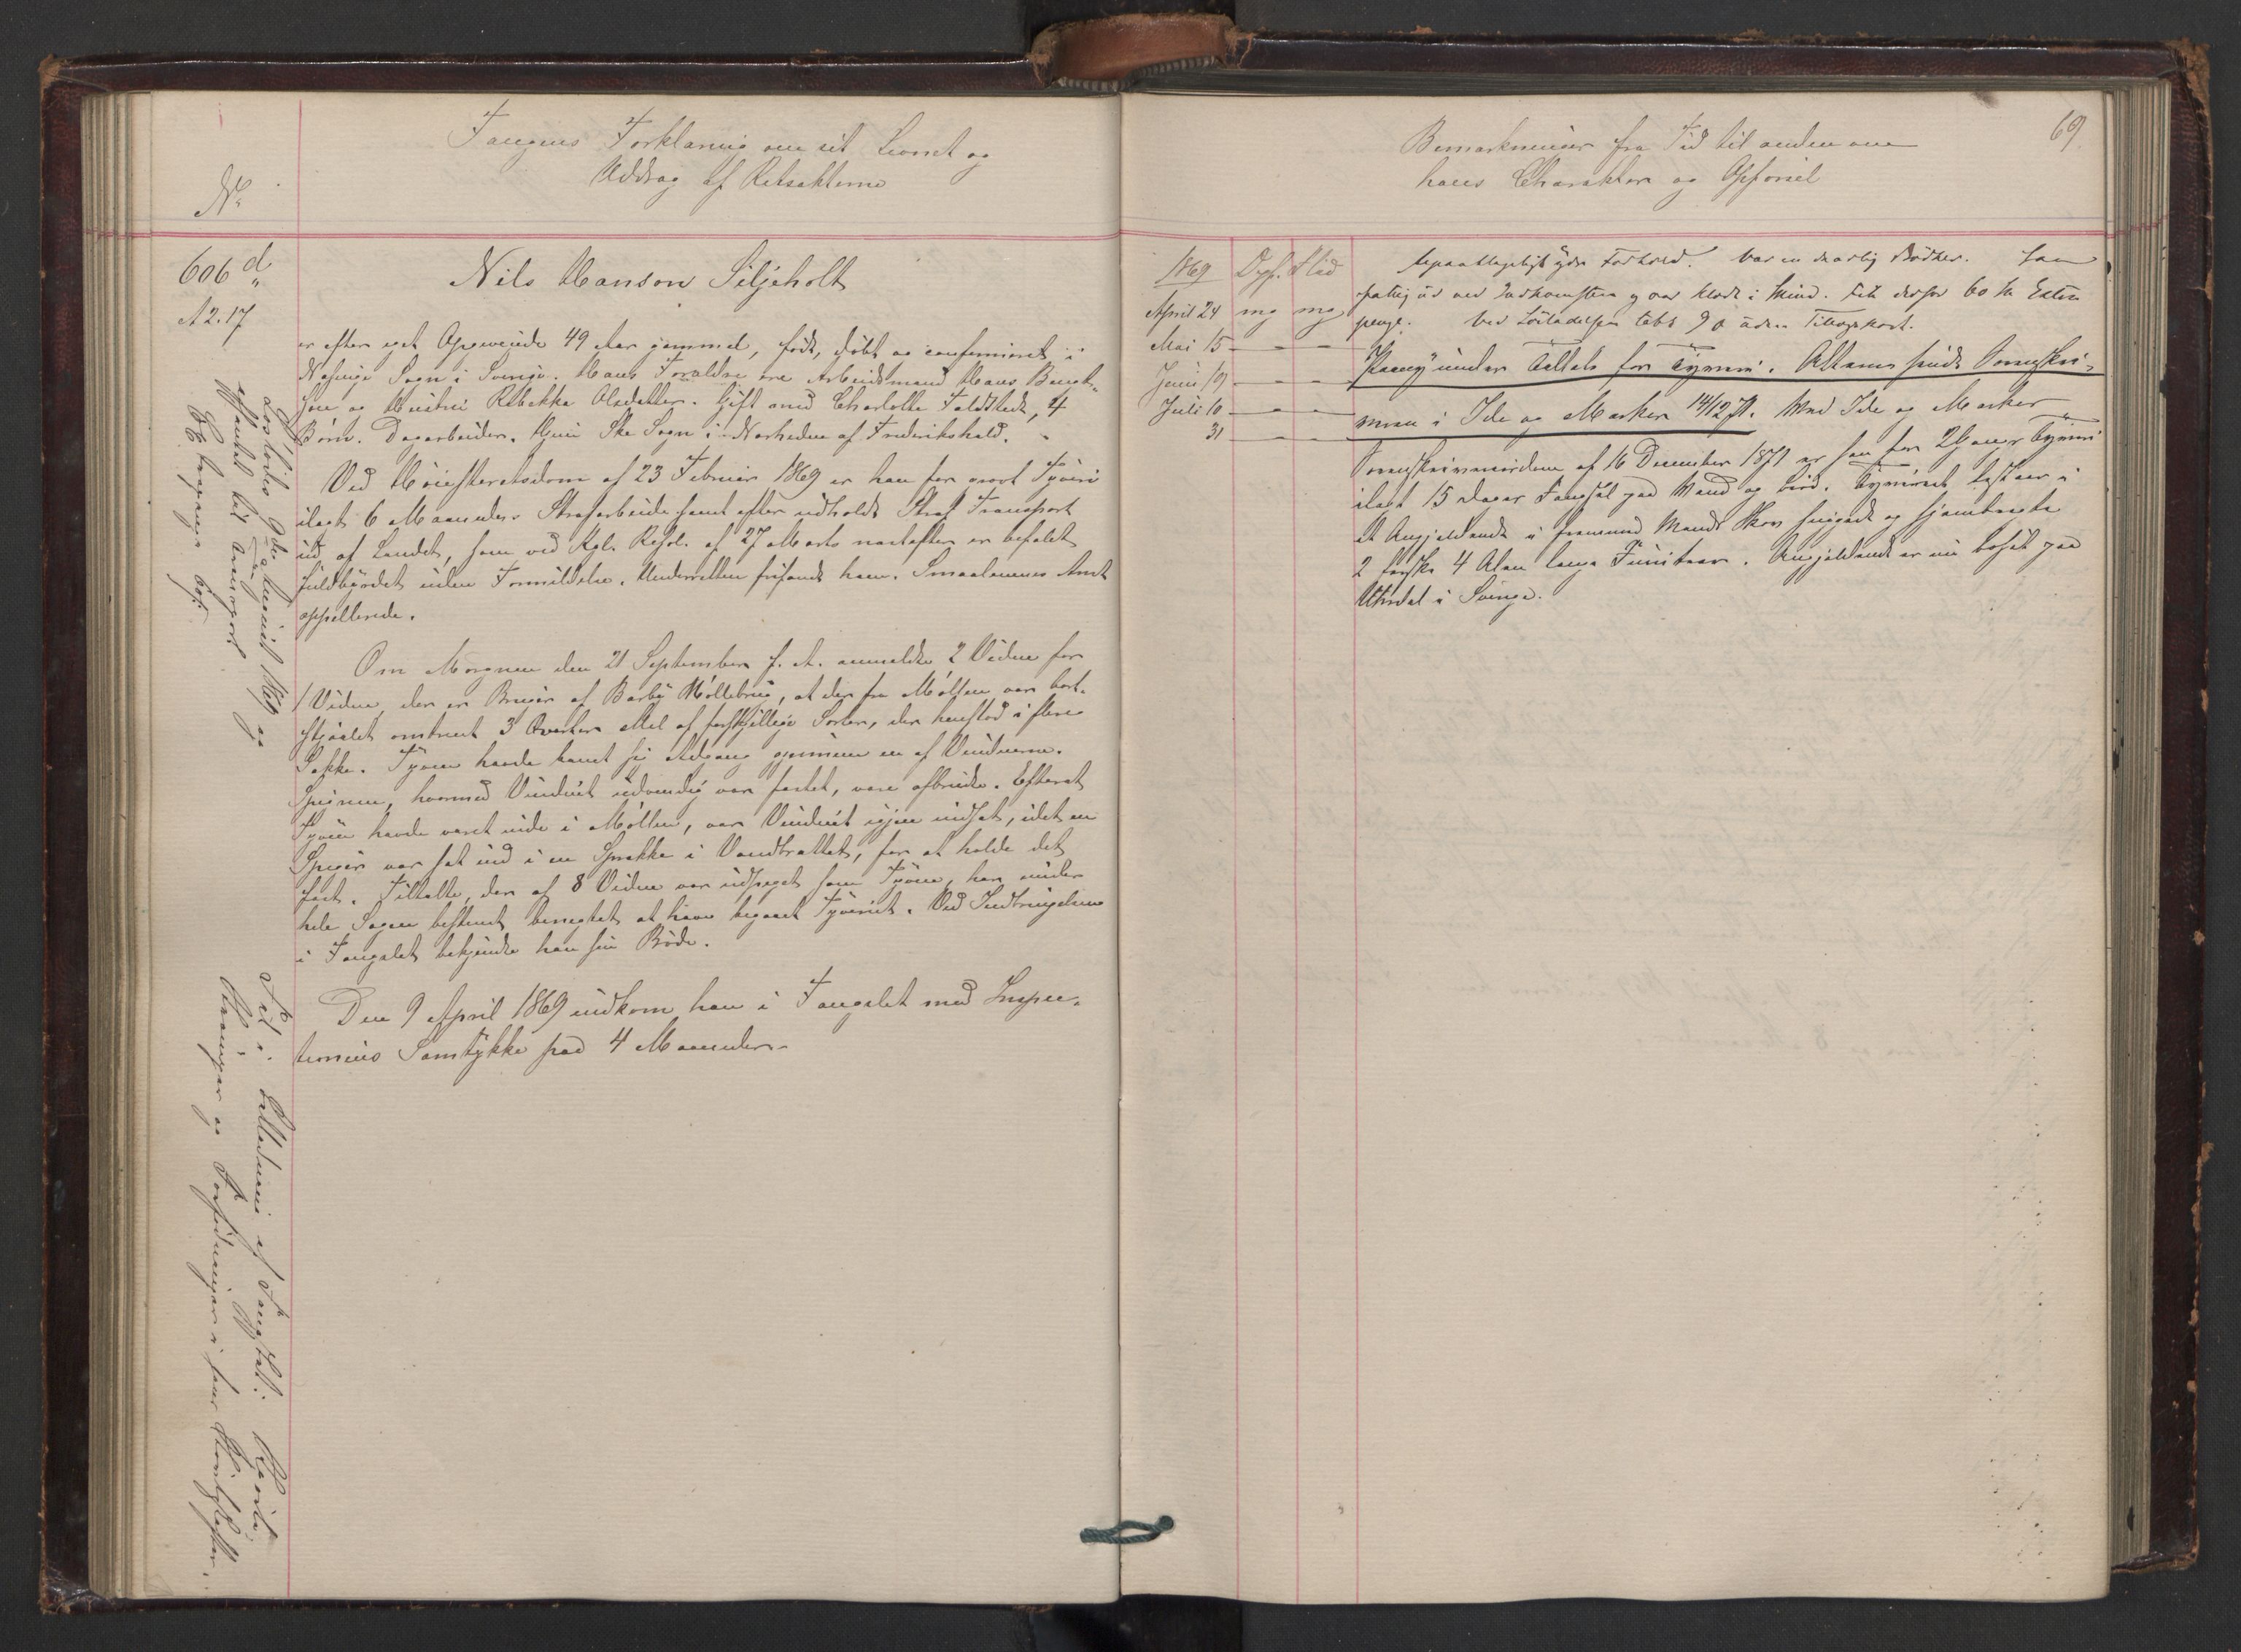 Fangens Forklaring om sit Levnet og
Uddrag af Retsakterne
No
606 d
A 2. 17
Nils Hanson Siljeholt
er efter eget Opgivende 49 Aar gammel, født, døbt og confirmeret i
Nasinge Sogn i Sverige. Hans Forældre ere Arbeidsmand Hans Bengt-
son og Hustru Rebekka Olsdatter. Gift med Charlotte Faldstedt, 4
Børn. Dagarbeider. Hjem Ske Sogn i Nærheden af Frederikshald.
Ved Høiesteretsdom af 23 Februar 1869 er han for grovt Tyveri
ilagt 6 Maaneders Strafarbeide samt efter udholdt Straf Transport
ud af Landet, som ved Kgl. Resol. af 27 Marts næstefter er befalet
fuldbyrdet uden Formildelse. Underretten frifandt ham. Smaalenenes Amt
appellerede.
Om Morgenen den 21 September f. A. anmeldte 2 Vidne for
1 Vidne, der er Bruger af Barby Møllebrug, at der fra Møllen var bort-
stjaalet omtrent 3 Qvarter Mel af forskjellige Sorter, der henstod i flere
Sække. Tyven havde banet sig Adgang gjennem en af Vinduerne.
Spigrene, hvormed Vinduet udvendig var fæstet, vare afbrudte. Efterat
Tyven havde været inde i Møllen, var Vinduet igjen indsat, idet en
Spiger var sat ind i en Sprække i Vandbrættet, for at holde det
fast. Tiltalte, der af 8 Vidne var udpeget som Tyven, har under
hele Sagen bestemt benegtet at have begaaet Tyveriet. Ved Indbringelsen
i Fangslet bekjendte han sin Brøde.
Den 9 April 1869 indkom han i Fangslet med Inspec-
tionens Samtykke paa 4 Maaneder.
Løslodes 9de August 1869 og
afsendt til
Bemærkninger fra Tid til anden om
hans Charakter og Opførsel
69
1869 Opf. Flid
April 24 mg mg
Mai 15 - - -
Juni 19 - - -
Juli 10 - - -
31 - - -
Upaaklageligt ydre Forhold. Var en daarlig Bødker. Saa
fattig ud ved Indkomsten og var klædt i Skind. Fik derfor 60 ſk Extra
penge. Ved Løsladelsen
Paany under Tiltale for Tyveri. Akterne sendt Sorenskri-
veren i Ide og Marker 14/12 71. Med Ide og Marker
Sorenskriverdom af 16 December 1871 er han for 2den Gang Tyveri
ilagt 15 Dages Fængsel paa Vand og Brød. Tyveriet bestaar i
at Angjeldende i fremmed Mands Skov huggede og hjembragte
2 ferske 4 Alen lange Furutræer. Angjeldende er nu bosat paa
i Sverige.